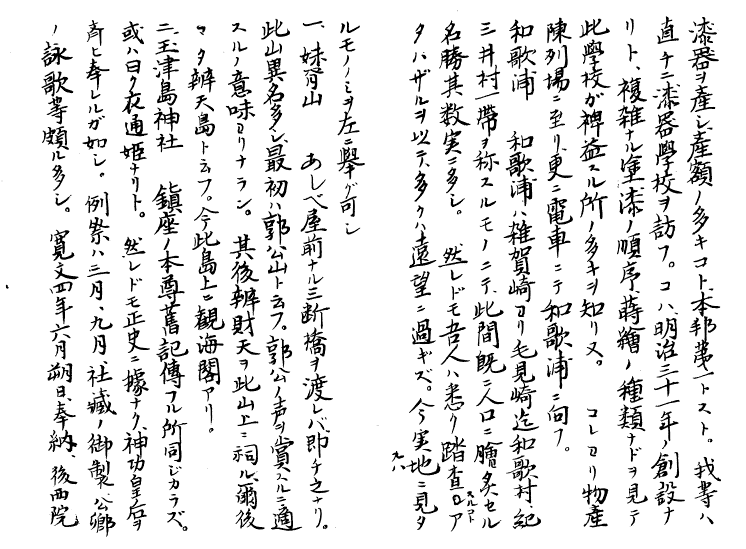 漆器ヲ產シ產額ノ多キコト、本邦第一トスト。我等ハ
直チニ漆器學校ヲ訪フ。コハ、明治三十一年ノ創設ナ
リト、複雑ナル塗漆ノ順序、蒔繪ノ種類ナドヲ見テ
此學校ガ裨益スル所ノ多キヲ知リヌ。 コレヨリ物產
陳列場ニ至リ、更ニ電車ニテ和歌浦ニ向フ。
和歌浦 和歌浦ハ雑賀崎ヨリ毛見崎迄和歌村、紀
三井村一帶ヲ称スルモノニテ、此間既ニ人口ニ膾炙セル
名勝其数実ニ多シ。 然レドモ吾人ハ悉ク踏査スルコトア
タハザルヲ以テ、多クハ遠望ニ過ギズ。今実地ニ見タ
ルモノノミヲ左ニ擧グ可シ
一、妹背山 あしべ屋前ナル三断橋ヲ渡レバ、即チ之ナリ。
此山異名多シ、最初ハ郭公山ト云フ。郭公ノ声ヲ賞スルニ適
スルノ意味ヨリナラン。 其後辨財天ヲ此山上ニ祠ル、爾後
マタ辨天島ト云フ。今此島上ニ観海閣アリ。
二、玉津島神社 鎮座ノ本尊舊記傳フル所同ジカラズ。
或ハ曰ク衣通姫ナリト。 然レドモ正史ニ據ナク、神功皇后ヲ
斉ヒ奉レルガ如シ。例祭ハ三月、九月、社藏ノ御製、公卿
ノ詠歌等頗ル多シ。 寛文四年六月朔日、奉納、後西院